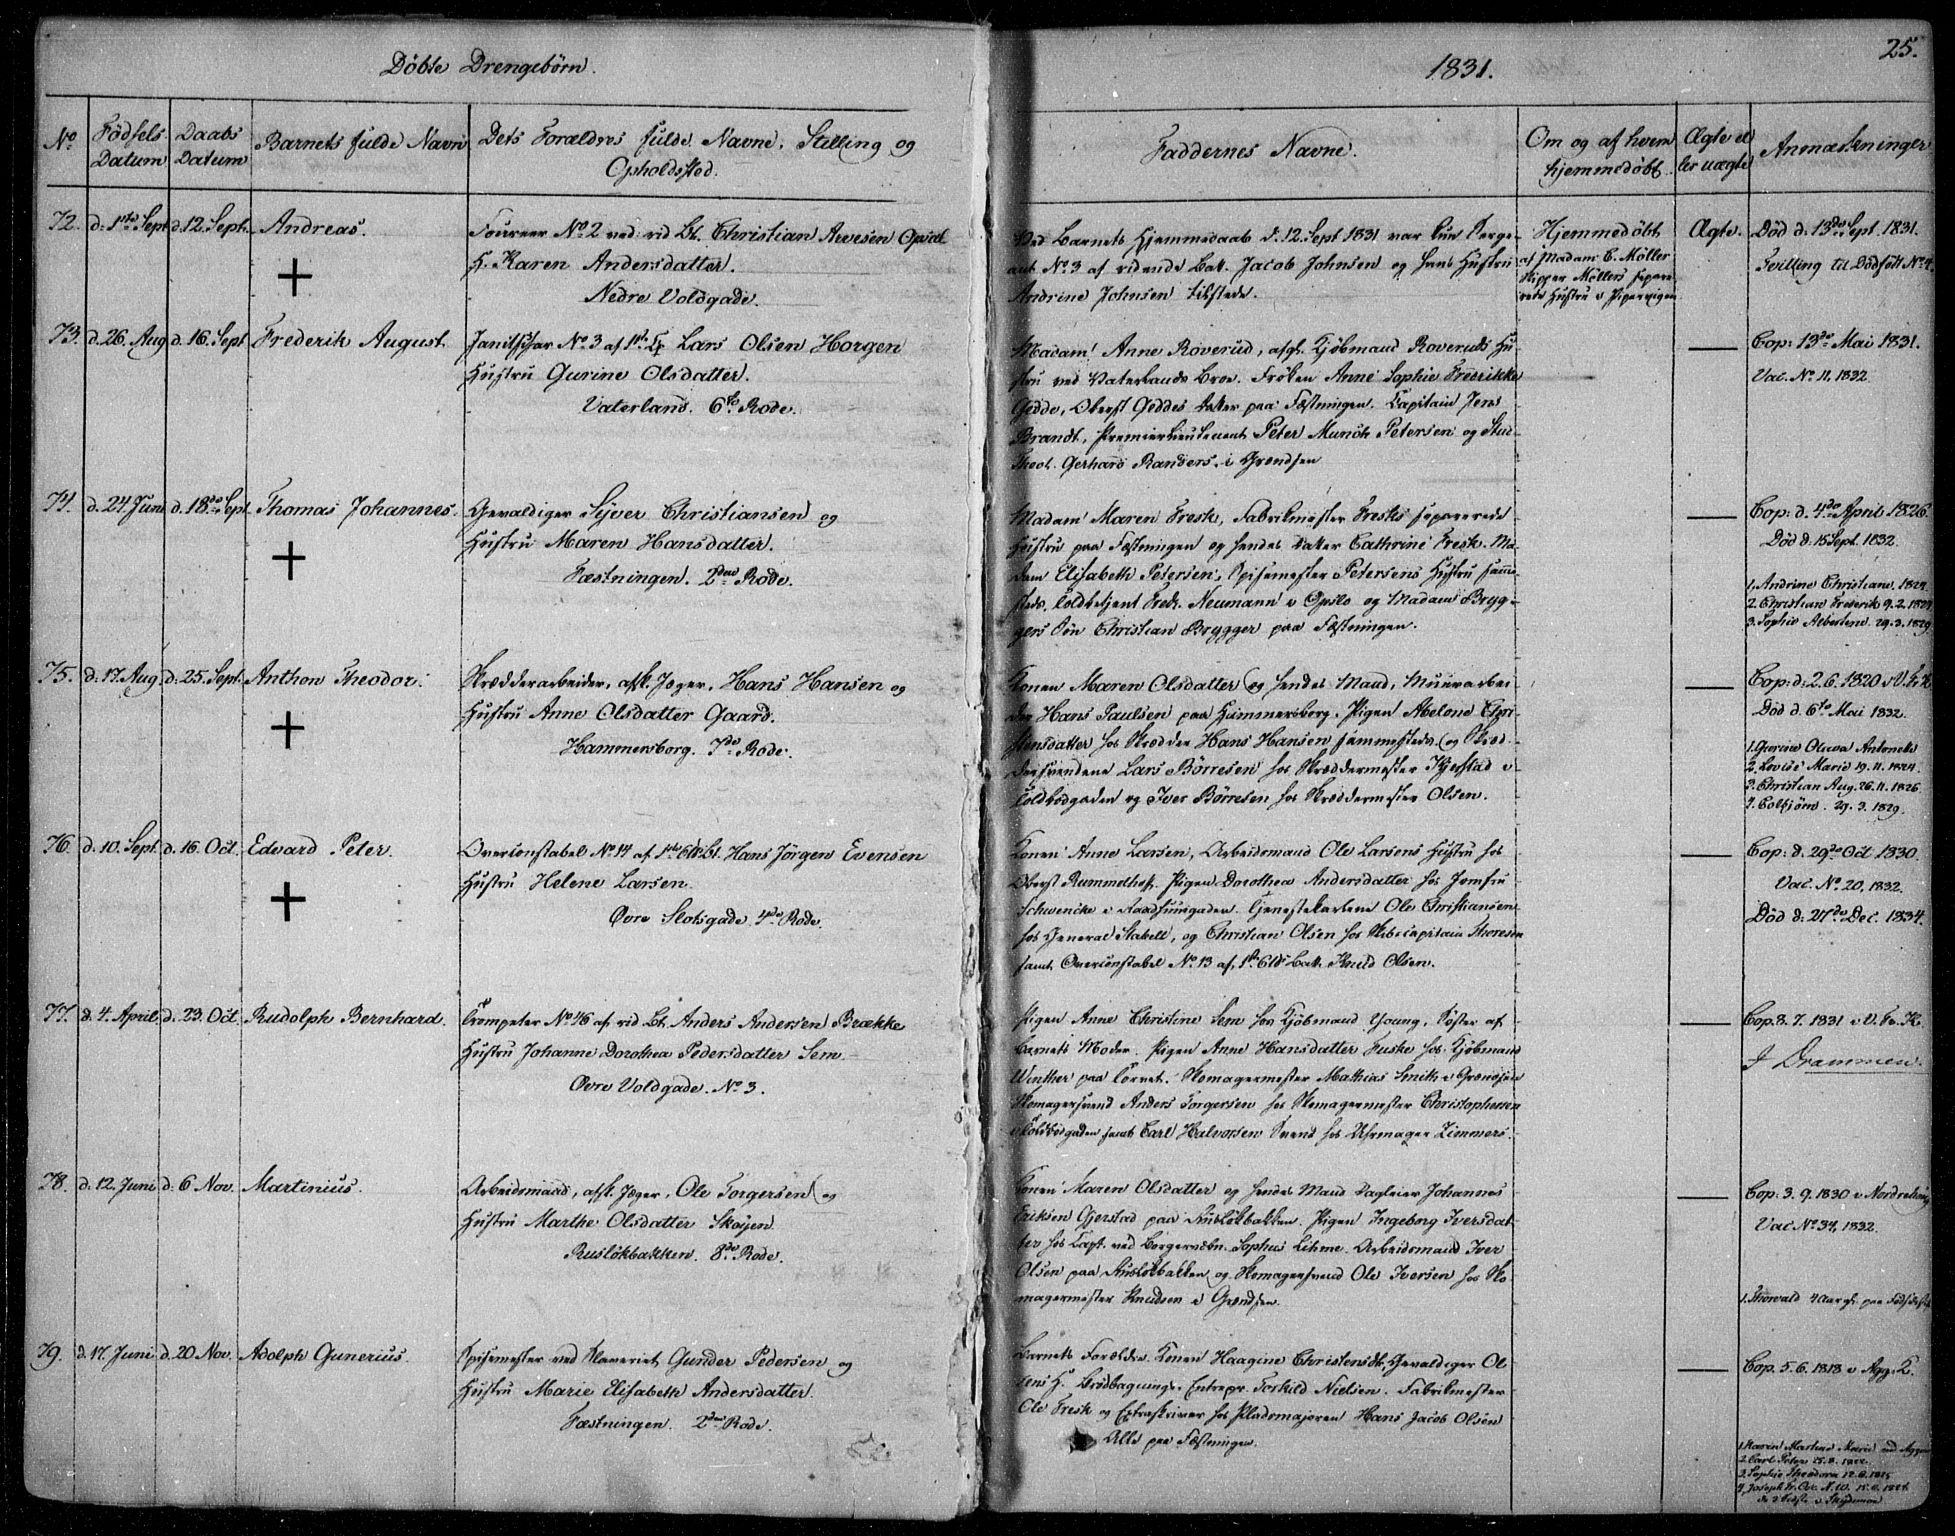 Döbte Drengebørn.
1831.
25.
No
Födsels Datum
Daabs Datum
Barnets fulde Navn
Dets Forældres fulde Navne, Stilling og Opholdssted.
Faddernes Navne.
Om og af hvem hjemmedöbt.
Ægte el ler uægte
Anmærkninger
72. d. 1ste Sept d. 12 Sept. Andreas.
Foureer No 2 ved rid Bt. Christian Arvesen Opsal
H. Karen Andersdatter.
Nedre Voldgade.
Ved Barnets Hjemmedaab d. 12 Sept 1831 var kun Serge-
ant No 3 af ridende Batt. Jacob Johnsen og hans Hustru
Andrine Johnsen tilstede.
Hjemmedöbt
af Madam E. Möller
Skipper Möllers separe-
rede Hustru i Pipervigen
Ægte.
Död d. 13de Sept. 1831.
Tvilling til Dödfödt No 4.
73. d. 26. Aug d. 16 Sept Frederik August.
Janitschar No 3 af 1ste Lars Olsen Horgen
Hustru Gurine Olsdatter.
Vaterland. 6te Rode.
Madam Anne Roverud, afg. Kjöbmand Roveruds Hu-
stru ved Vaterlands Broe. Fröken Anne Sophie Fredrikke
Gedde, Oberst Geddes Datter paa Fæstningen. Capitain Jens
Brandt, Premierlieutenant Peter Munch Petersen og Stud
Theol. Gerhard Randers i Grændsen
Cop: 13de Mai 1831.
Vac. No 11, 1832
74. d. 24 Juni d. 18de Sept Thomas Johannes.
Gevaldiger Sijver Christiansen og
Hustru Maren Hansdatter.
Fæstningen. 2den Rode.
Madam Maren Fresk, Fabrikmester Fresks separerede
Hustru paa Fæstningen og hendes Datter Cathrine Fresk. Ma-
dam Elisabeth Petersen, Spisemester Petersens Hustru samme-
steds, Toldbetjent Fredr. Neumann i Opslo og Madam Bryg-
gers Sön Christian Brygger paa Fæstningen.
Cop: d. 4de April 1826.
Död d. 15 Sept. 1832
1. Andrine Christiane, 1824
2. Christian Frederik 9. 2. 1827
3. Sophie Albertine. 29. 3. 1829
75. d. 17. Aug. d. 25. Sept. Anthon Theodor.
Skrædderarbeider, afsk. Jæger, Hans Hansen og
Hustru Anne Olsdatter Gaard.
Hammersborg. 7de Rode.
Konen Maren Olsdatter og hendes Mand, Muurarbei-
der Hans Paulsen paa Hammersborg. Pigen Abelone Chri-
stensdatter hos Skrædder Hans Hansen sammesteds og Skræd-
dersvendene Lars Börresen hos Skræddermester Kjerstad i
Toldbodgaden og Iver Börresen hos Skræddermester Olsen.
Cop: d. 2. 6. 1820 i V. Fr. K
Död d. 6te Mai 1832.
1. Gurine Olava Antonette
2. Lovise Marie 19. 11. 1824.
3. Christian Aug. 26. 11. 1826
29. 3. 1829.
76. d. 10. Sept. d. 16. Oct. Edvard Peter.
Overconstabel No 14 af 1ste 6 Bt. Hans Jörgen Evensen
Hustru Helene Larsen.
Övre Slotsgade 4de Rode.
Konen Anne Larsen, Arbeidsmand Ole Larsens Hustru hos
Oberst Rummelhoff. Pigen Dorothea Andersdatter hos Jomfru
Schwencke i Raadhuusgaden. Tjenestekarlene Ole Christiansen
hos General Stabell, og Christian Olsen hos Skibscapitain Thoresen
samt Overconstabel No 13 af 1ste 6 Batt. Knud Olsen.
Cop: d. 29de Oct 1830.
Vac. No 20, 1832.
Död d. 27de Dec. 1834.
77. d. 4. April. d. 23. Oct. Rudolph Bernhard.
Trompeter No 46 af rid Bt. Anders Andersen Brække
Hustru Johanne Dorothea Pedersdatter Sem.
Övre Voldgade. No 3.
Pigen Anne Christine Sem hos Kjöbmand Young, Söster af
Barnets Moder. Pigen Anne Hansdatter Fuske hos Kjöbmand
Winther paa Torvet. Skomagermester Mathias Smith i Grændsen
Skomagersvend Anders Torgersen hos Skomagermester Christophersen
i Toldbodgaden samt Carl Halvorsen Svend hos Uhrmager Zimmers.
Cop. 8. 7. 1831 i V. Fr. K.
I Drammen.
78. d. 12. Juni d. 6 Nov. Martinius.
Arbeidsmand, afsk. Jæger, Ole Torgersen og
Hustru Marthe Olsdatter Sköjen
Ruslökbakken. 8de Rode.
Konen Maren Olsdatter og hendes Mand Dagleier Johannes
Eriksen Gjerstad paa Ruslökbakken. Pigen Ingeborg Iversdat-
ter hos Capt. ved Borgervæbn. Sophus Lihme. Arbeidsmand Iver
Olsen paa Ruslökbakken og Skomagersvend Ole Iversen hos Sko-
magermester Knudsen i Grændsen.
Cop. 3. 9. 1830 i Nordrehoug
Vac No 34, 1832.
1. Thorvald 4 Aar gl. paa Födsdstdt
79. d. 17. Juni d. 20 Nov. Adolph Gunerius.
Spisemester ved Slaveriet Gunder Pedersen og
Hustru Marie Elisabeth Andersdatter.
Fæstningen. 2den Rode.
Barnets Forældre. Konen Haagine Christensdr, Gevaldiger Ol-
sens H. Brödbagnings-Entrepr. Torkild Nielsen. Fabrikmester
Ole Fresk og Extraskriver hos Pladsmajoren Hans Jacob Olsen
Alle paa Fæstningen.
Cop. 5. 6. 1818 i Agg. K.
1. Karen Martine Marie
2. Carl Peter 25. 8. 1822.
3. Sophie Theodora 12. 6. 1825
4. Joseph Fr. Osc. N. W. 15. 6. 1828.